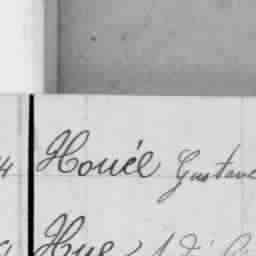 4 Houél Gustave
Hue